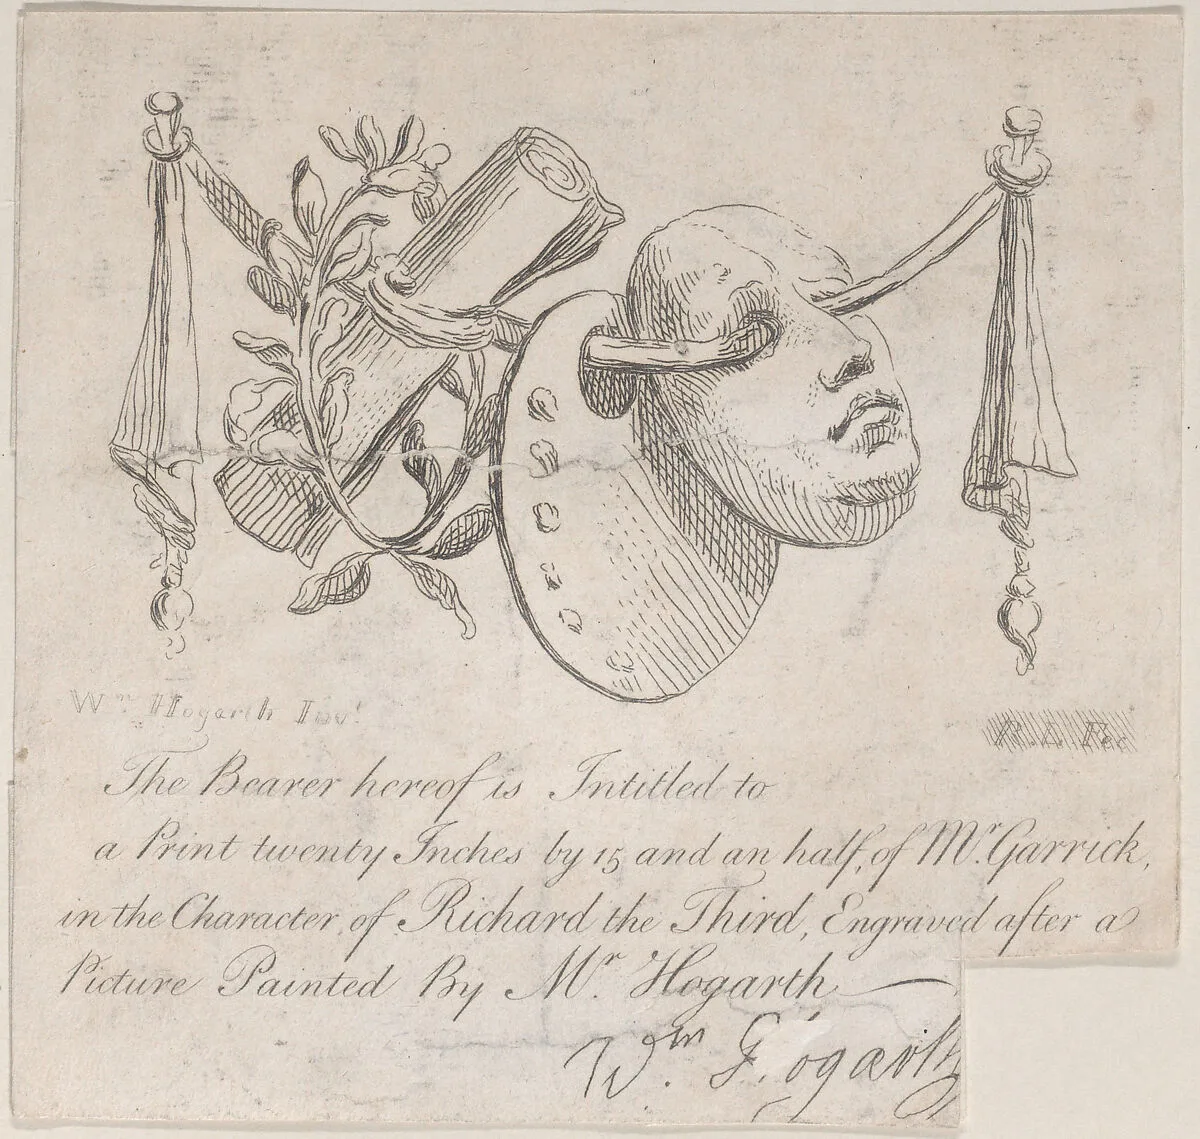 Wm Hogarth Inv.t
The Bearer hereof is Intitled to
a Print twenty Inches by 15 and an half, of Mr. Garrick,
in the Character of Richard the Third, Engraved after a
Picture Painted By Mr. Hogarth
Wm. Hogarth